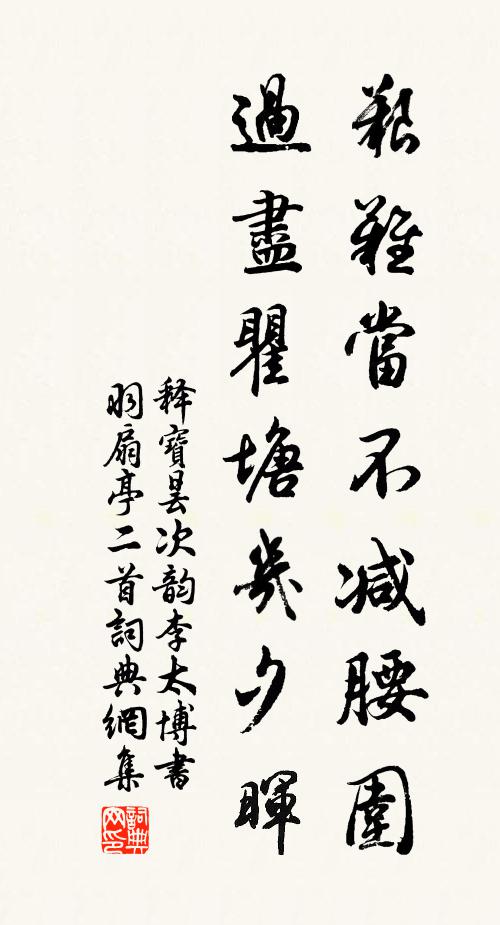 艱難當不减腰圍
過盡瞿塘幾夕暉
释寶曇次韵李太博書
羽扇亭二首詞典網集
詞典網印